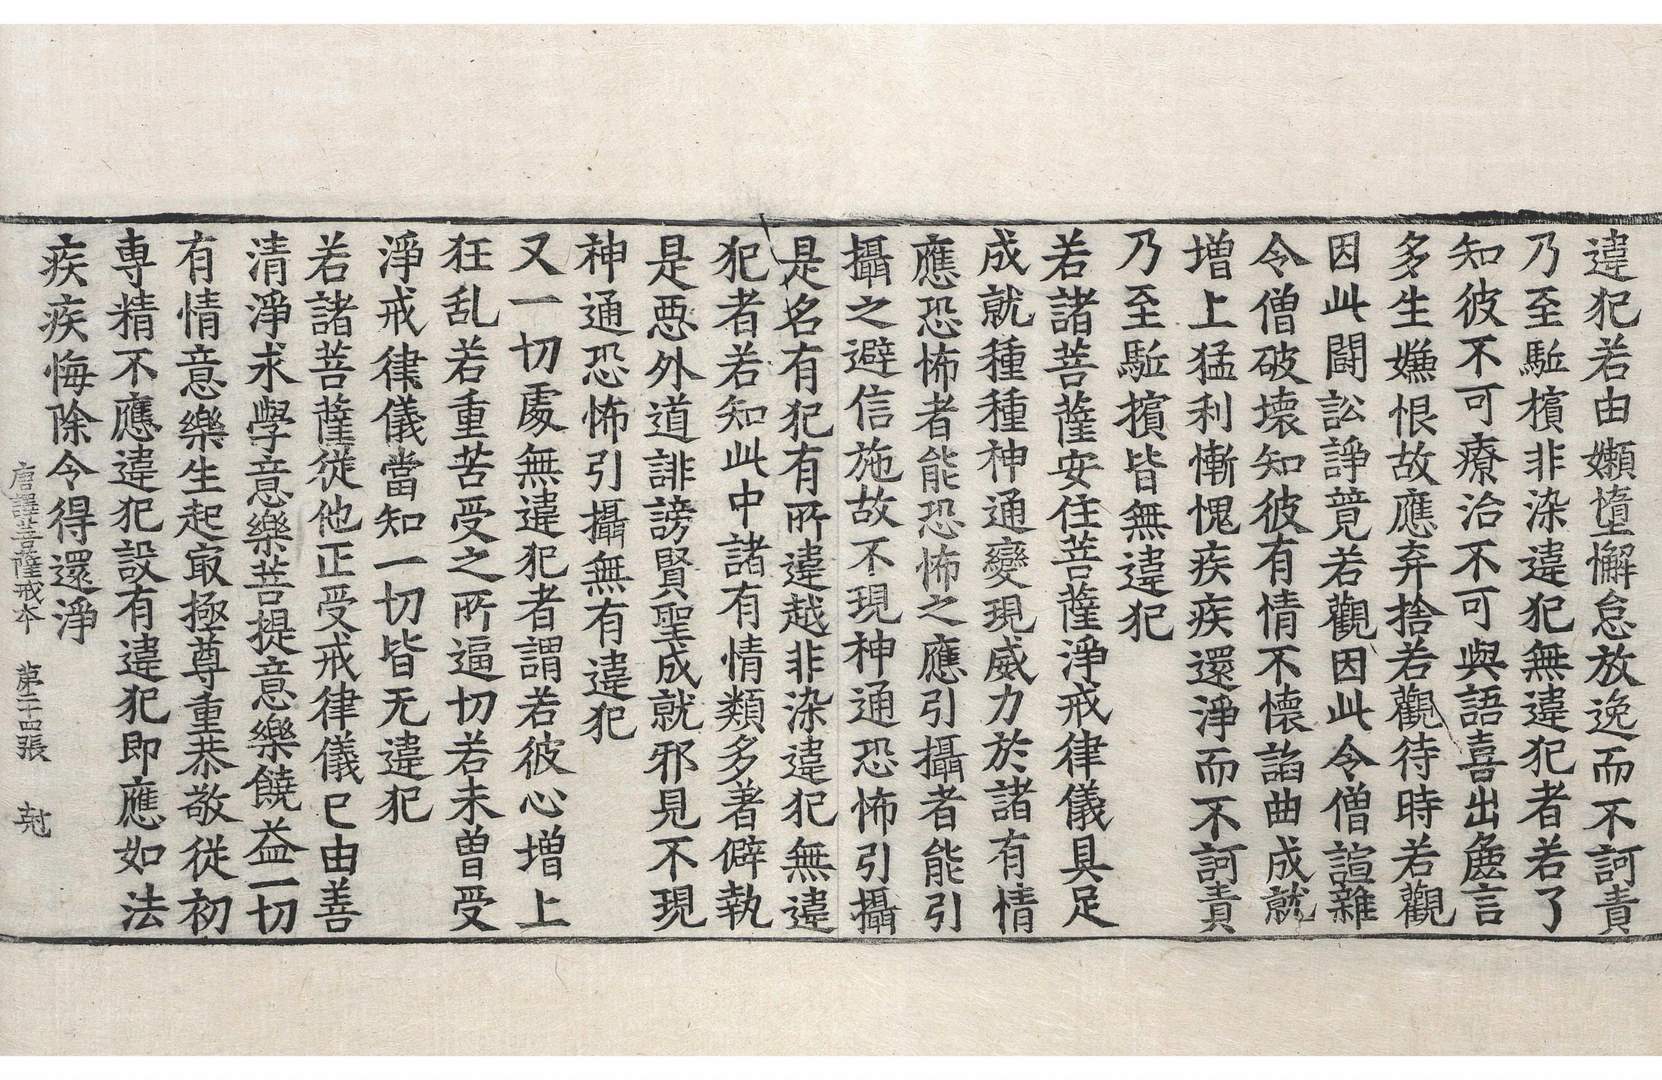 違犯若由嬾墮懈怠放逸而不訶責
乃至駈擯非染違犯無違犯者若了
知彼不可療治不可與語喜出麁言
多生嫌恨故應弃捨若觀待時若觀
因此鬪訟諍竟若觀因此令僧諠雜
令僧破壞知彼有情不懷諂曲成就
增上猛利慚愧疾疾還淨而不訶責
乃至駈擯皆無違犯
若諸菩薩安住菩薩淨戒律儀具足
成就種種神通變現威力於諸有情
應恐怖者能恐怖之應引攝者能引
攝之避信施故不現神通恐怖引攝
是名有犯有所違越非染違犯無違
犯者若知此中諸有情類多著僻執
是惡外道誹謗賢聖成就邪見不現
神通恐怖引攝無有違犯
又一切處無違犯者謂若彼心增上
狂乱若重苦受之所逼切若未曾受
淨戒律儀當知一切皆无違犯
若諸菩薩從他正受戒律儀已由善
清淨求學意樂菩提意樂饒益一切
有情意樂生起㝡極尊重恭敬從初
專精不應違犯設有違犯即應如法
疾疾悔除令得還淨
唐譯菩薩戒本 第二十四張 尅